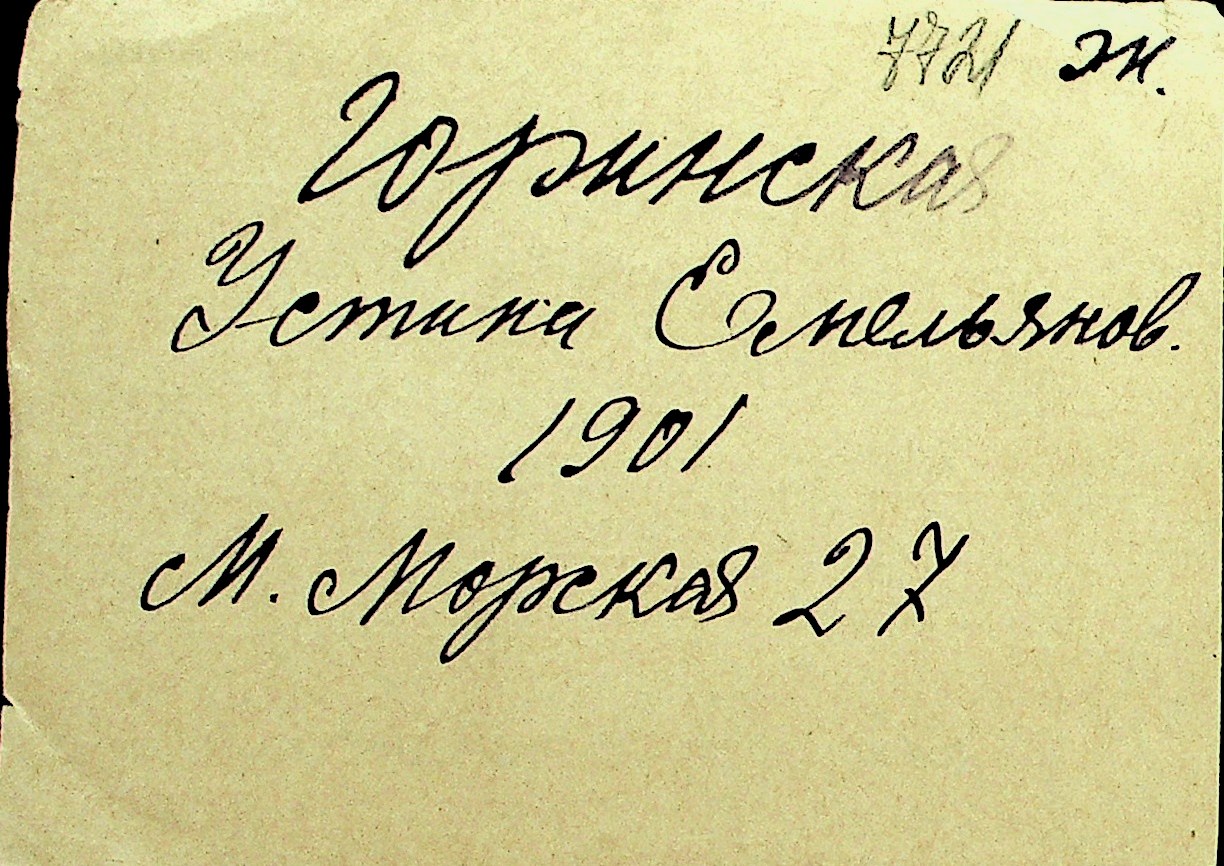 7721 ж.
Горинская
Устина Емельянов.
1901
М. Морская 27